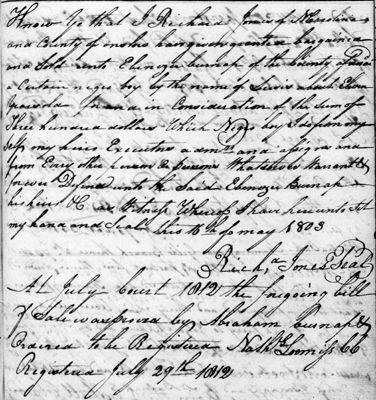 Know Ye that I Richard Jones of N Carolina
and County of onslow have given granted bargained
and Sold unto Ebenezer burnap of the County of
a Certain negro boy by the name of Lewis about Eleven
years old for and in Consideration of the Sum of
Three hundred dollars Which Negro boy I do from my
self my heirs Executors and assigns and
from Every other person or persons Whatsoever Warrant &
forever Defend unto the Said Ebenezer Burnap
his heirs &C as Witness Whereof I have hereunto Set
my hand and Seal this 16 day may 1803
Rich,d Jones Seal
At July Court 1812 the foregoing bill
of Sale was proved by Abraham burnap &
Ordered to be Registered Nathl. Loomiss CC
Registered July 29th 1812